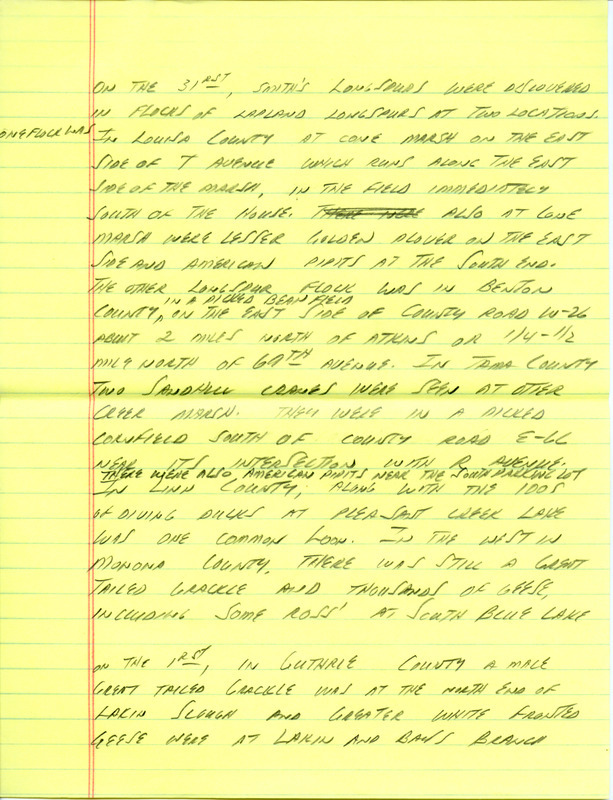 ON THE 31RST, SMITH'S LONGSPURS WERE DISCOVERED
IN FLOCKS OF LAPLAND LONGSPURS AT TWO LOCATIONS.
ONE FLOCK WAS IN LOUISA COUNTY AT CONE MARSH ON THE EAST
SIDE OF T AVENUE WHICH RUNS ALONG THE EAST
SIDE OF THE MARSH, IN THE FIELD IMMEDIATELY
SOUTH OF THE HOUSE. ALSO AT CONE
MARSH WERE LESSER GOLDEN PLOVER ON THE EAST
SIDE AND AMERICAN PIPITS AT THE SOUTH END.
THE OTHER LONGSPUR FLOCK WAS IN BENTON
IN A PICKED BEAN FIELD
COUNTY, ON THE EAST SIDE OF COUNTY ROAD W-26
ABOUT 2 MILES NORTH OF ATKINS OR 1/4-1/2
MILE NORTH OF 69TH AVENUE. IN TAMA COUNTY
TWO SANDHILL CRANES WERE SEEN AT OTTER
CREEK MARSH. THEY WERE IN A PICKED
CORNFIELD SOUTH OF COUNTY ROAD E-66
NEAR ITS INTERSECTION WITH R AVENUE.
THERE WERE ALSO AMERICAN PIPITS NEAR THE SOUTH PARKING LOT
IN LINN COUNTY, ALONG WITH THE 100S
OF DIVING DUCKS AT PLEASANT CREEK LAKE
WAS ONE COMMON LOON. IN THE WEST IN
MONONA COUNTY, THERE WAS STILL A GREAT
TAILED GRACKLE AND THOUSANDS OF GEESE,
INCLUDING SOME ROSS' AT SOUTH BLUE LAKE
ON THE 1RST, IN GUTHRIE COUNTY A MALE
GREAT TAILED GRACKLE WAS AT THE NORTH END OF
LAKIN SLOUGH AND GREATER WHITE FRONTED
GEESE WERE AT LAKIN AND BAYS BRANCH